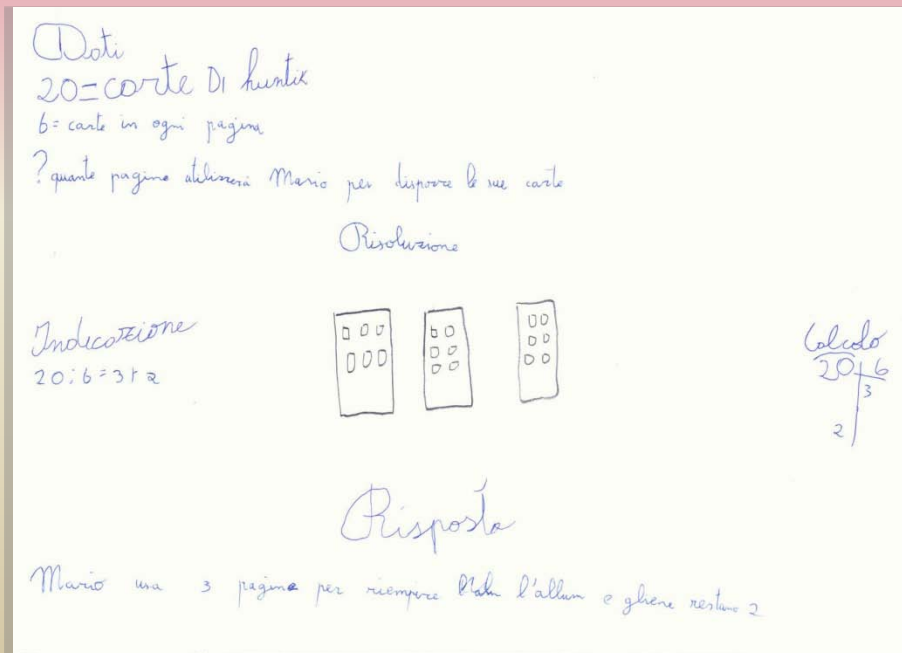 Dati
20=carte DI huntik
6= carte in ogni pagina
? quante pagine utilizzerà Mario per disporre le sue carte
Risoluzione
Indicazione
20:6=3 r 2
Calcolo
20 6
3
2
Risposta
Mario usa 3 pagine per riempire l'allum e gliene restano 2